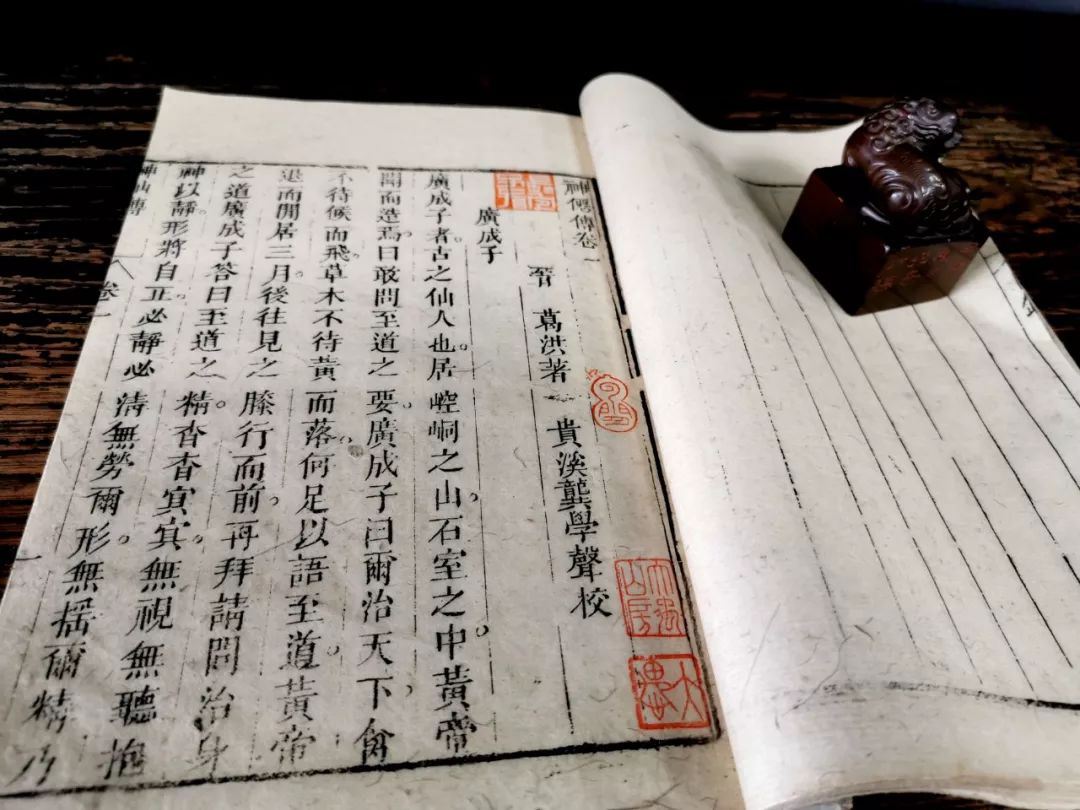 神僊傳卷一
晉 葛洪著 貴溪龔學聲校
廣成子
廣成子者。古之仙人也。居崆峒之山，石室之中。黃帝
聞而造焉。曰敢問至道之要。廣成子曰爾治天下，禽
不待候而飛。草木不待黃而落。何足以語至道。黃帝
退而閒居三月。後往見之。膝行而前。再拜請問治身
之道。廣成子答曰至道之精。杳杳冥冥。無視無聽。抱
神以靜。形將自正。必靜必清。無勞爾形。無搖爾精。乃
神仙傳 卷一 一